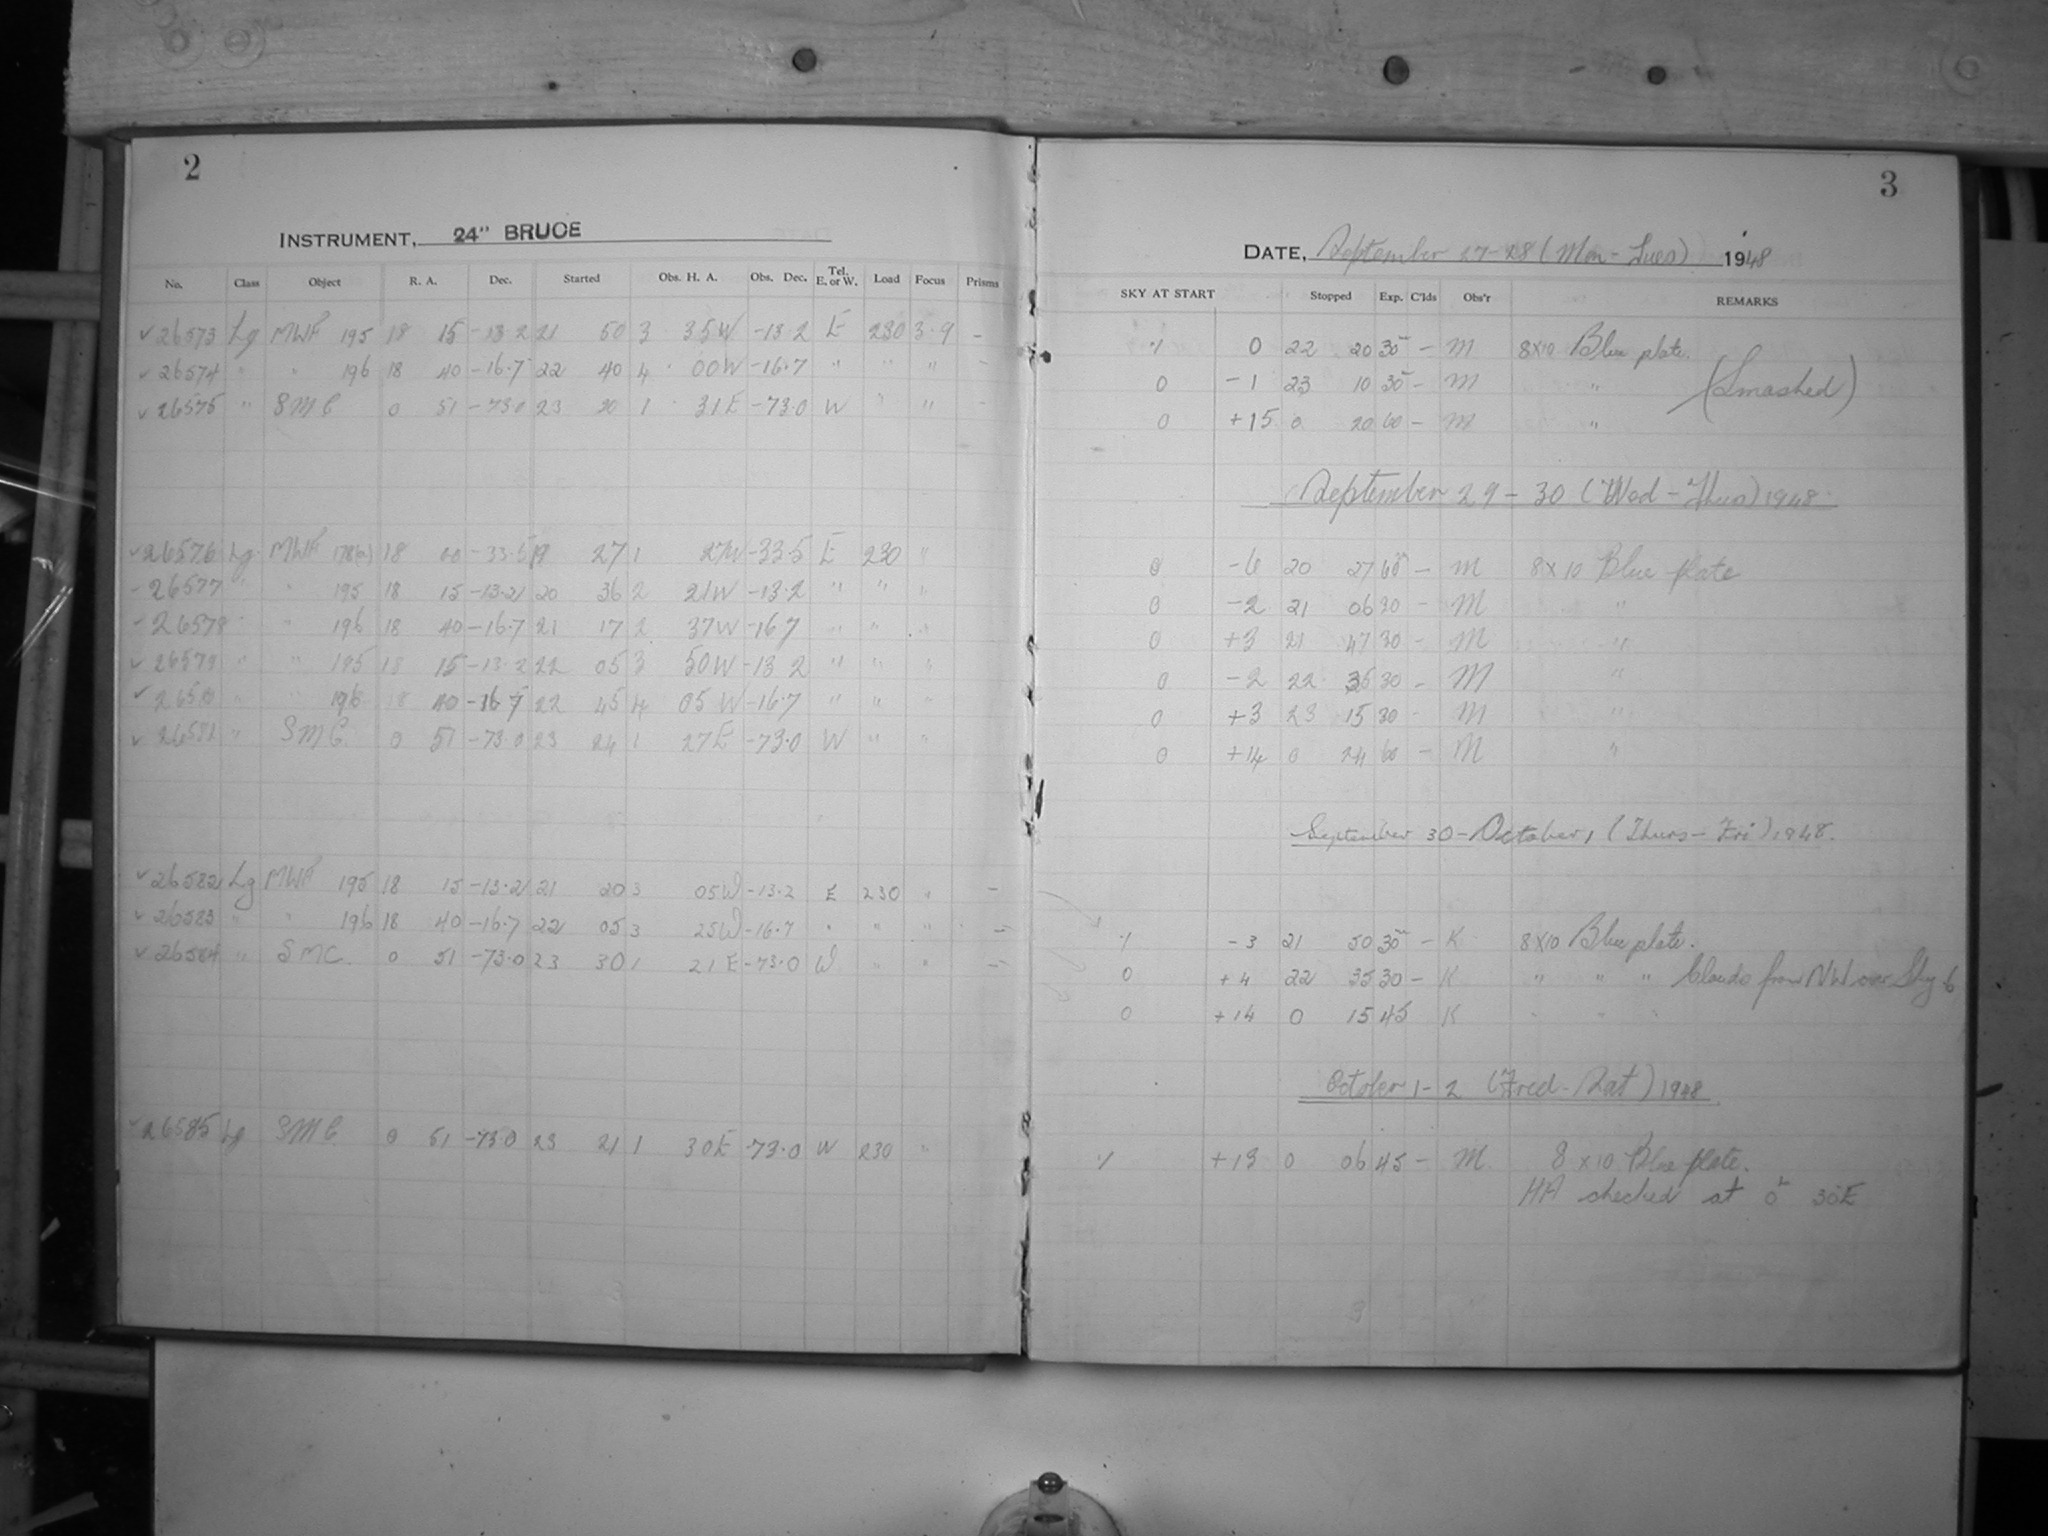 2
INSTRUMENT, 24" BRUCE
No. Class Object R. A. Dec. Started Obs. H. A. Obs. Dec. Tel. E. or W. Load Focus Prisms
✓26573 Lg MWF 195 18 15 -13.2 21 50 3 35W -13.2 E 230 3.9 -
✓26574 " " 196 18 40 -16.7 22 40 4 00W -16.7 " " " -
✓26575 " SMC 0 51 -73.0 23 20 1 31E -73.0 W " " -
✓26576 Lg MWF 18 00 -33.5 19 27 1 27W -33.5 E 230 "
-26577 " " 195 18 15 -13.2 20 36 2 21W -13.2 " " "
-26578 " " 196 18 40 -16.7 21 17 2 37W -16.7 " " "
✓26579 " " 195 18 15 -13.2 22 05 3 50W -13.2 " " "
✓26580 " " 196 18 40 -16.7 22 45 4 05W -16.7 " " "
✓26581 " SMC 0 51 -73.0 23 24 1 27E -73.0 W " "
✓26582 Lg MWF 195 18 15 -13.2 21 20 3 05W -13.2 E 230 " -
✓26583 " " 196 18 40 -16.7 22 05 3 25W -16.7 " " " -
✓26584 " SMC. 0 51 -73.0 23 30 1 21E -73.0 W " " -
✓26585 Lg SMC 0 51 -73.0 23 21 1 30E -73.0 W 230 "
3
DATE, September 27-28 (Mon-Tues) 1948
SKY AT START Stopped Exp. C'lds Obs'r REMARKS
0 22 20 30 - M 8x10 Blue plate.
0 -1 23 10 30 - M " (Smashed)
0 +15 0 20 60 - M "
September 29-30 (Wed-Thurs) 1948
0 -6 20 27 60 - M 8x10 Blue plate
0 -2 21 06 30 - M "
0 +3 21 47 30 - M "
0 -2 22 35 30 - M "
0 +3 23 15 30 - M "
0 +14 0 24 60 - M "
September 30-October 1 (Thurs-Fri) 1948.
-3 21 50 30 - K 8x10 Blue plate.
0 +4 22 35 30 - K " " " Clouds from NW over Sky 6
0 +14 0 15 45 K " " "
October 1-2 (Fred-Sat) 1948
+13 0 06 45 - M 8x10 Blue plate.
HA checked at 0h 30E